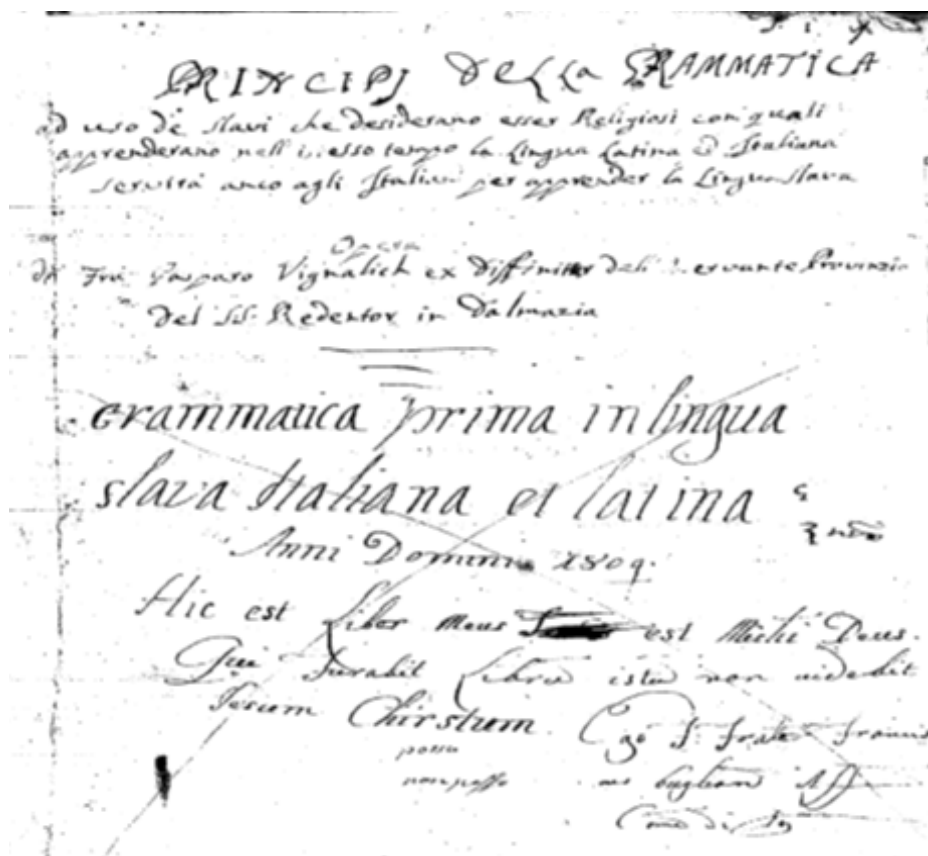 PRINCIPJ DELLA GRAMMATICA
ad uso de Slavi che desiderano esser Religiosi con quali
apprenderano nell istesso tempo la Lingua Latina ed Italiana
servirà anco agli Italiani per apprender la Lingua Slava
Opera
di Fra Gasparo Vignalich ex Diffinitor Provinzia
del SS. Redentor in Dalmazia
Grammatica prima in lingua
slava Italiana et latina
Anni Domini 1809.
Hic est Liber Meus est Michi Deus.
Qui furabit Librũ istũ non videbit
Jesum Christum
Ego frater
possu
non posso